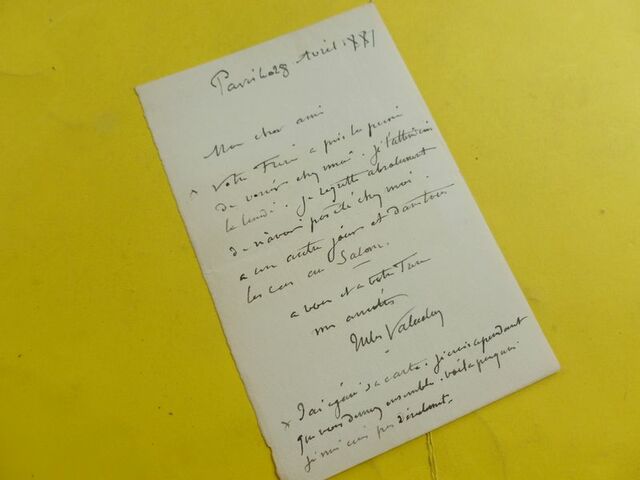 Paris le 28 Avril 1881
Mon cher ami
Votre a pris la peine
de venir chez moi. Je l'attendais
le lundi. Je regrette absolument
de n'avoir pas été chez moi.
a un autre jour et dans tous
les cas au Salon.
a vous et a votre
mes amitiés
Jules Valadon
x J'ai égaré sa carte. je crois cependant
que vous demeurez ensemble. voilà pourquoi
je n'ai pas